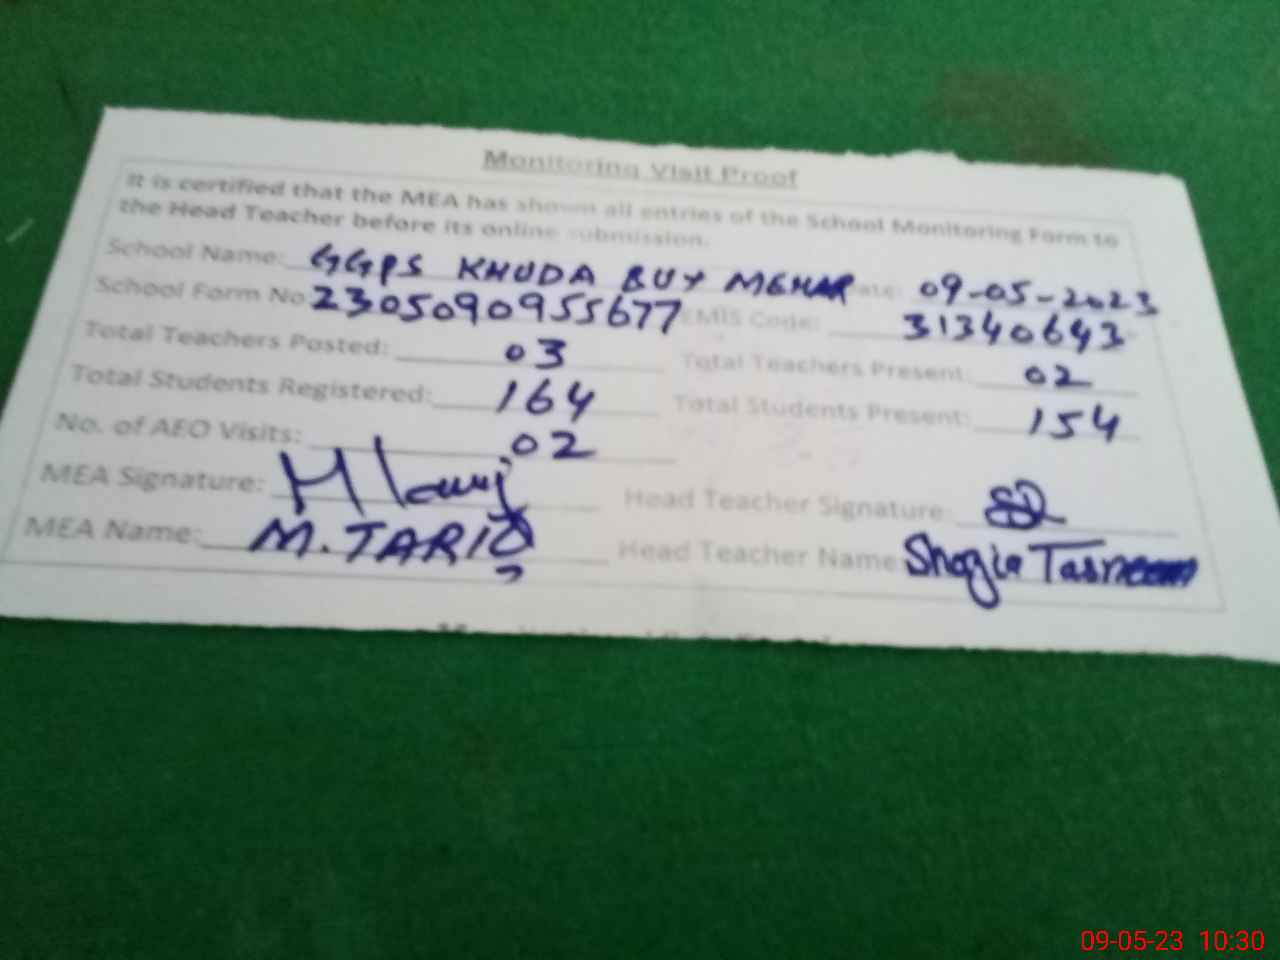 Monitoring Visit Proof
It is certified that the MEA has shown all entries of the School Monitoring Form to
the Head Teacher before its online submission.
School Name: GGPS KHUDA BUX MEHAR Date: 09-05-2023
School Form No 2305090955677 EMIS Code: 31340643
Total Teachers Posted: 03 Total Teachers Present: 02
Total Students Registered: 164 Total Students Present: 154
No. of AEO Visits: 02
MEA Signature: Head Teacher Signature:
MEA Name: M. TARIQ Head Teacher Name Shazia Tasneem
09-05-23 10:30